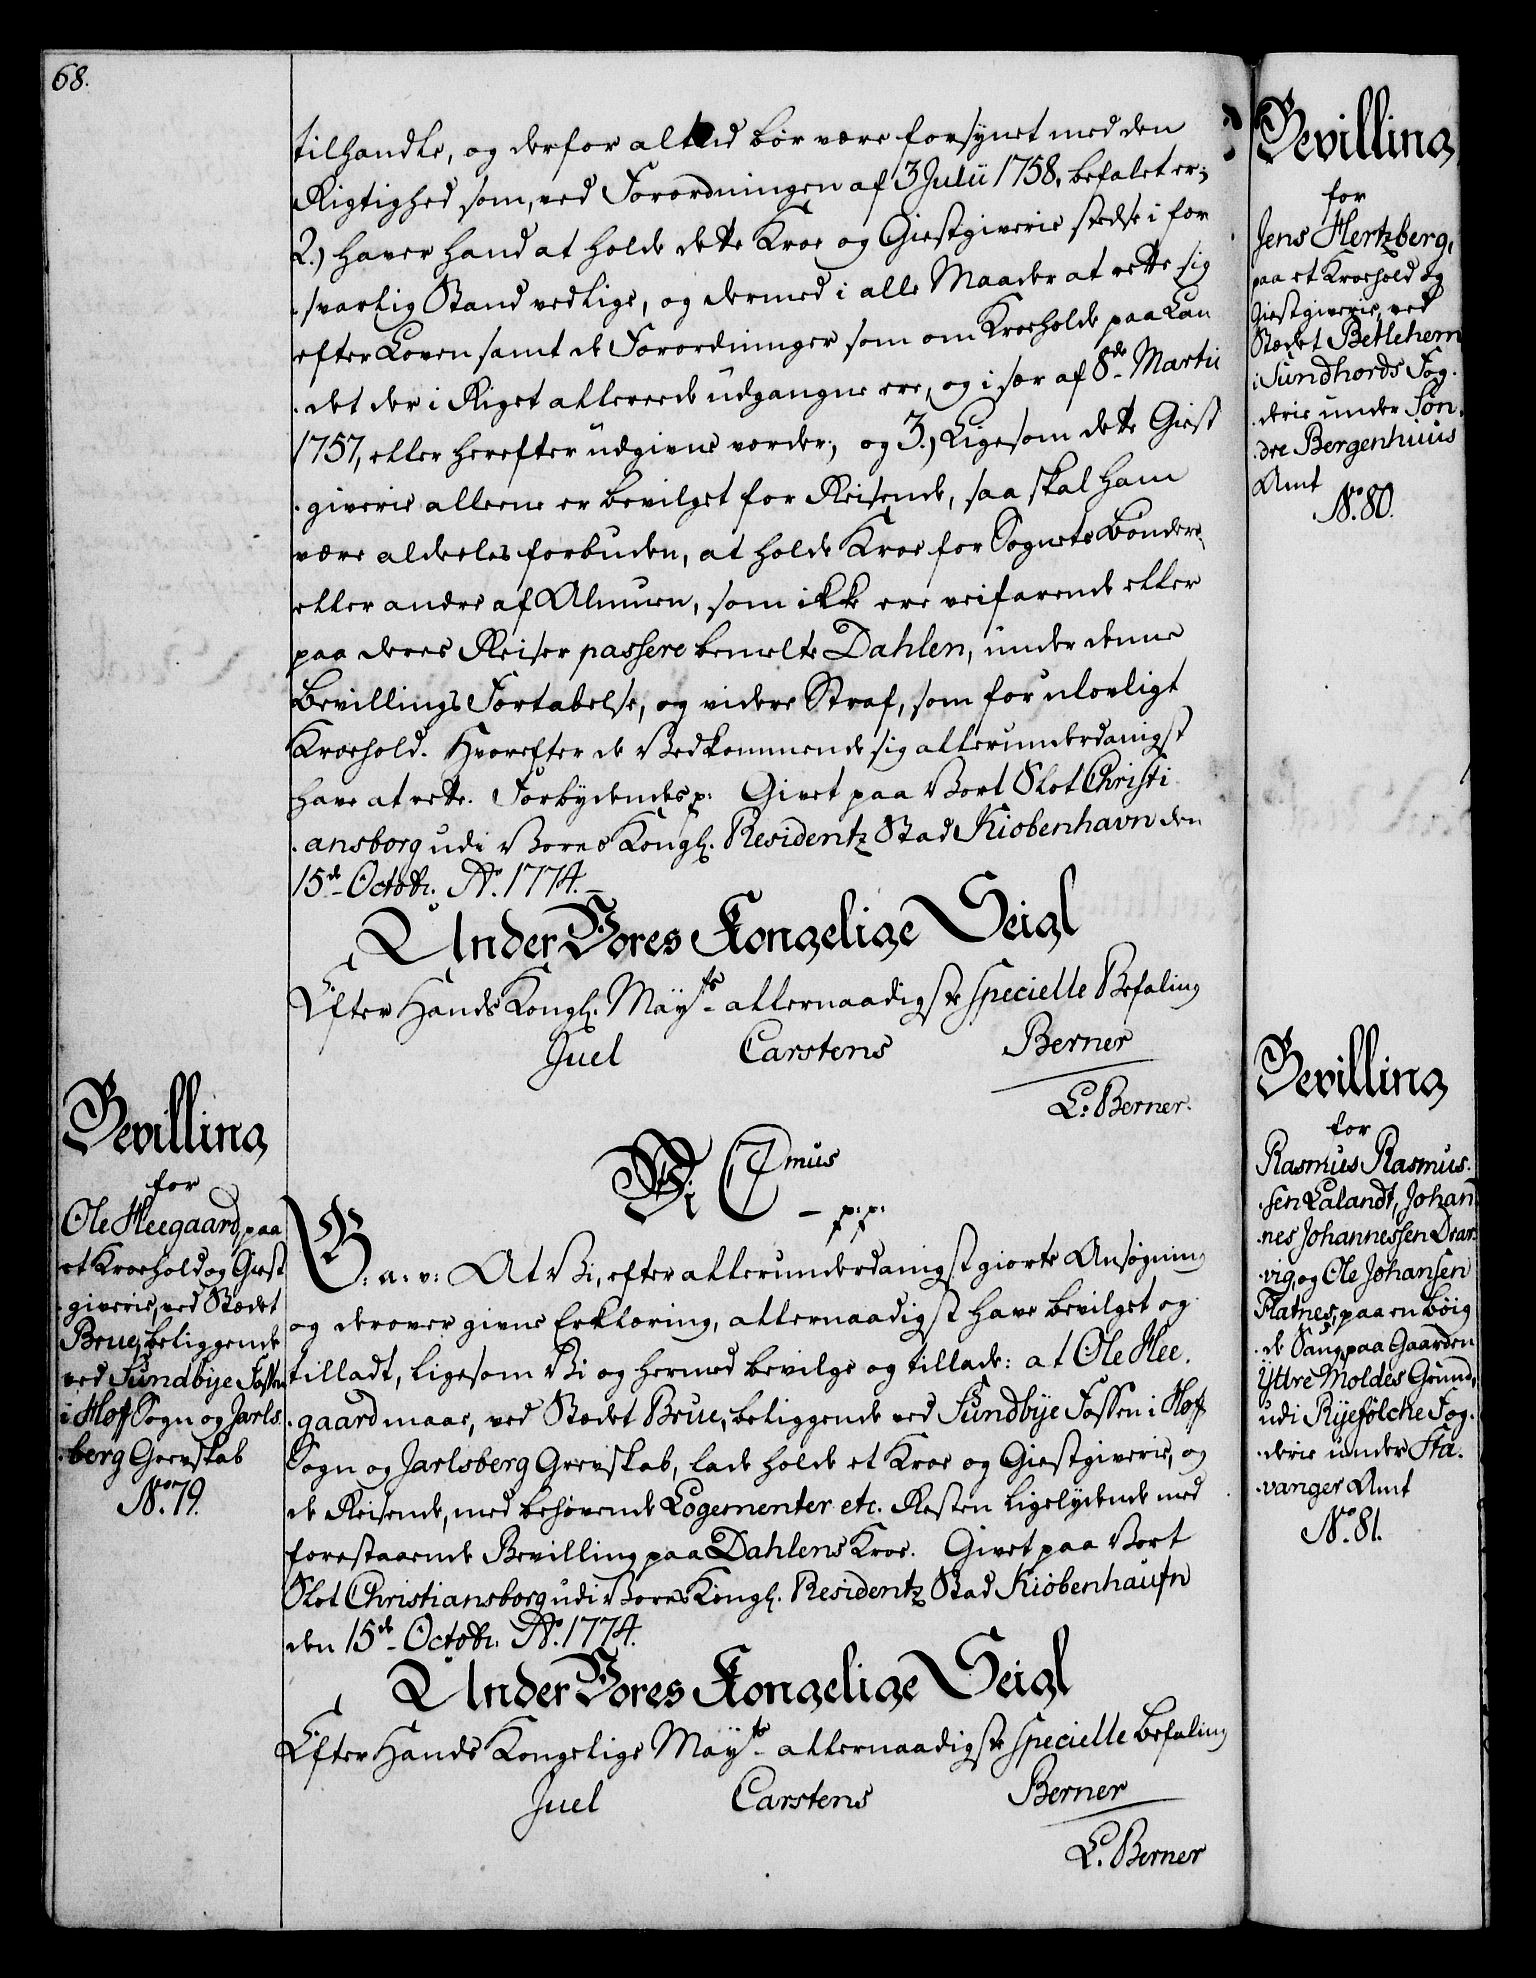 68.
tilhandle, og derfor altid bør være forsynet med den
Rigtighed som, ved Forordningen af 3 Julii 1758, befalet er;
2.) haver hand at holde dette Kroe og Giestgiverie stedse i for
-svarlig Stand vedlige, og dermed i alle Maader at rette sig
efter Loven samt de Forordninger som om Kroeholde paa Lan
-det der i Riget allereede udgangne ere, og i sær af 8de Martii
1757, eller herefter udgivne vorder; og 3.) Ligesom dette Giest
-giverie alleene er bevilget for Reisende, saa skal ham
være aldeeles forbuden, at holde Kroe for Sognets Bønder,
eller andre af Almuen, som ikke ere veifarende eller
paa deres Reiser passere bemelte Dahlen, under denne
Bevillings Fortabelse, og videre Straf, som for ulovligt
Kroehold. Hvorefter de Vedkommende sig allerunderdanigst
have at rette. Forbydendes p: Givet paa Vort Slot Christi
-ansborg udi Vores Kongl. Residentz Stad Kiøbenhavn den
15de Octobr. Ao. 1774.
Under Vores Kongelige Seigl
Efter Hands Kongl. Mayts allernaadigste specielle Befaling
Juel Carstens Berner
L. Berner.
Bevilling
for
Ole Heegaard, paa
et Kroehold og Giest
-giverie, ved Stædet
Brue, beliggende
ved Sundbye Fossen
i Hoff Sogn og Jarls
-berg Grevskab
No. 79.
Wi C7mus
p: p:
G: a: v: At Vi, efter allerunderdanigst giorte Ansøgning
og derover givne Erklæring, allernaadigst have bevilget og
tilladt, ligesom Vi og hermed bevilge og tillade: at Ole Hee
-gaard maae, ved Stædet Brue, beliggende ved Sundbye Fossen i Hoff
Sogn og Jarlsberg Grevskab, lade holde et Kroe og Giestgiverie, og
de Reisende, med behøvende Logementer etc. Resten ligelydende med
forestaaende Bevilling paa Dahlens Kroe. Givet paa Vort
Slot Christiansborg udi Vores Kongl. Residentz Stad Kiøbenhaufn
den 15de Octobr. Ao. 1774.
Under Vores Kongelige Seigl
Efter Hands Kongelige Mayts allernaadigste specielle Befaling
Juel Carstens Berner
L. Berner
Bevilling
for
Jens Hertzberg,
paa et Kroehold og
Giestgiverie, ved
Stædet Betlehem
i Sundhords Fog-
-derie under Søn-
-dre Bergenhuus
Amt
No. 80.
Bevilling
for
Rasmus Rasmus-
-sen Lalandt, Johan
-nes Johannessen Drar
-vig, og Ole Johansen
Flatnes, paa en bøig
-de Saug, paa Gaarden
Yttre Moldes Grund,
udi Ryefølche Fog-
-derie under Sta-
-vanger Amt
No. 81.